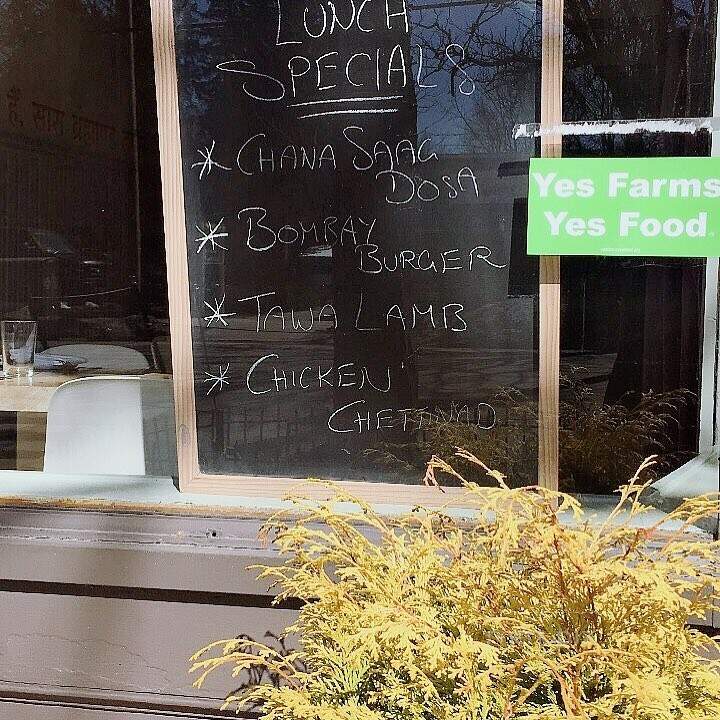 LUNCH
SPECIALS
* CHANA SAAG
DOSA
* BOMBAY
BURGER
* TAWA LAMB
* CHICKEN
CHETTINAD
Yes Farms
Yes Food